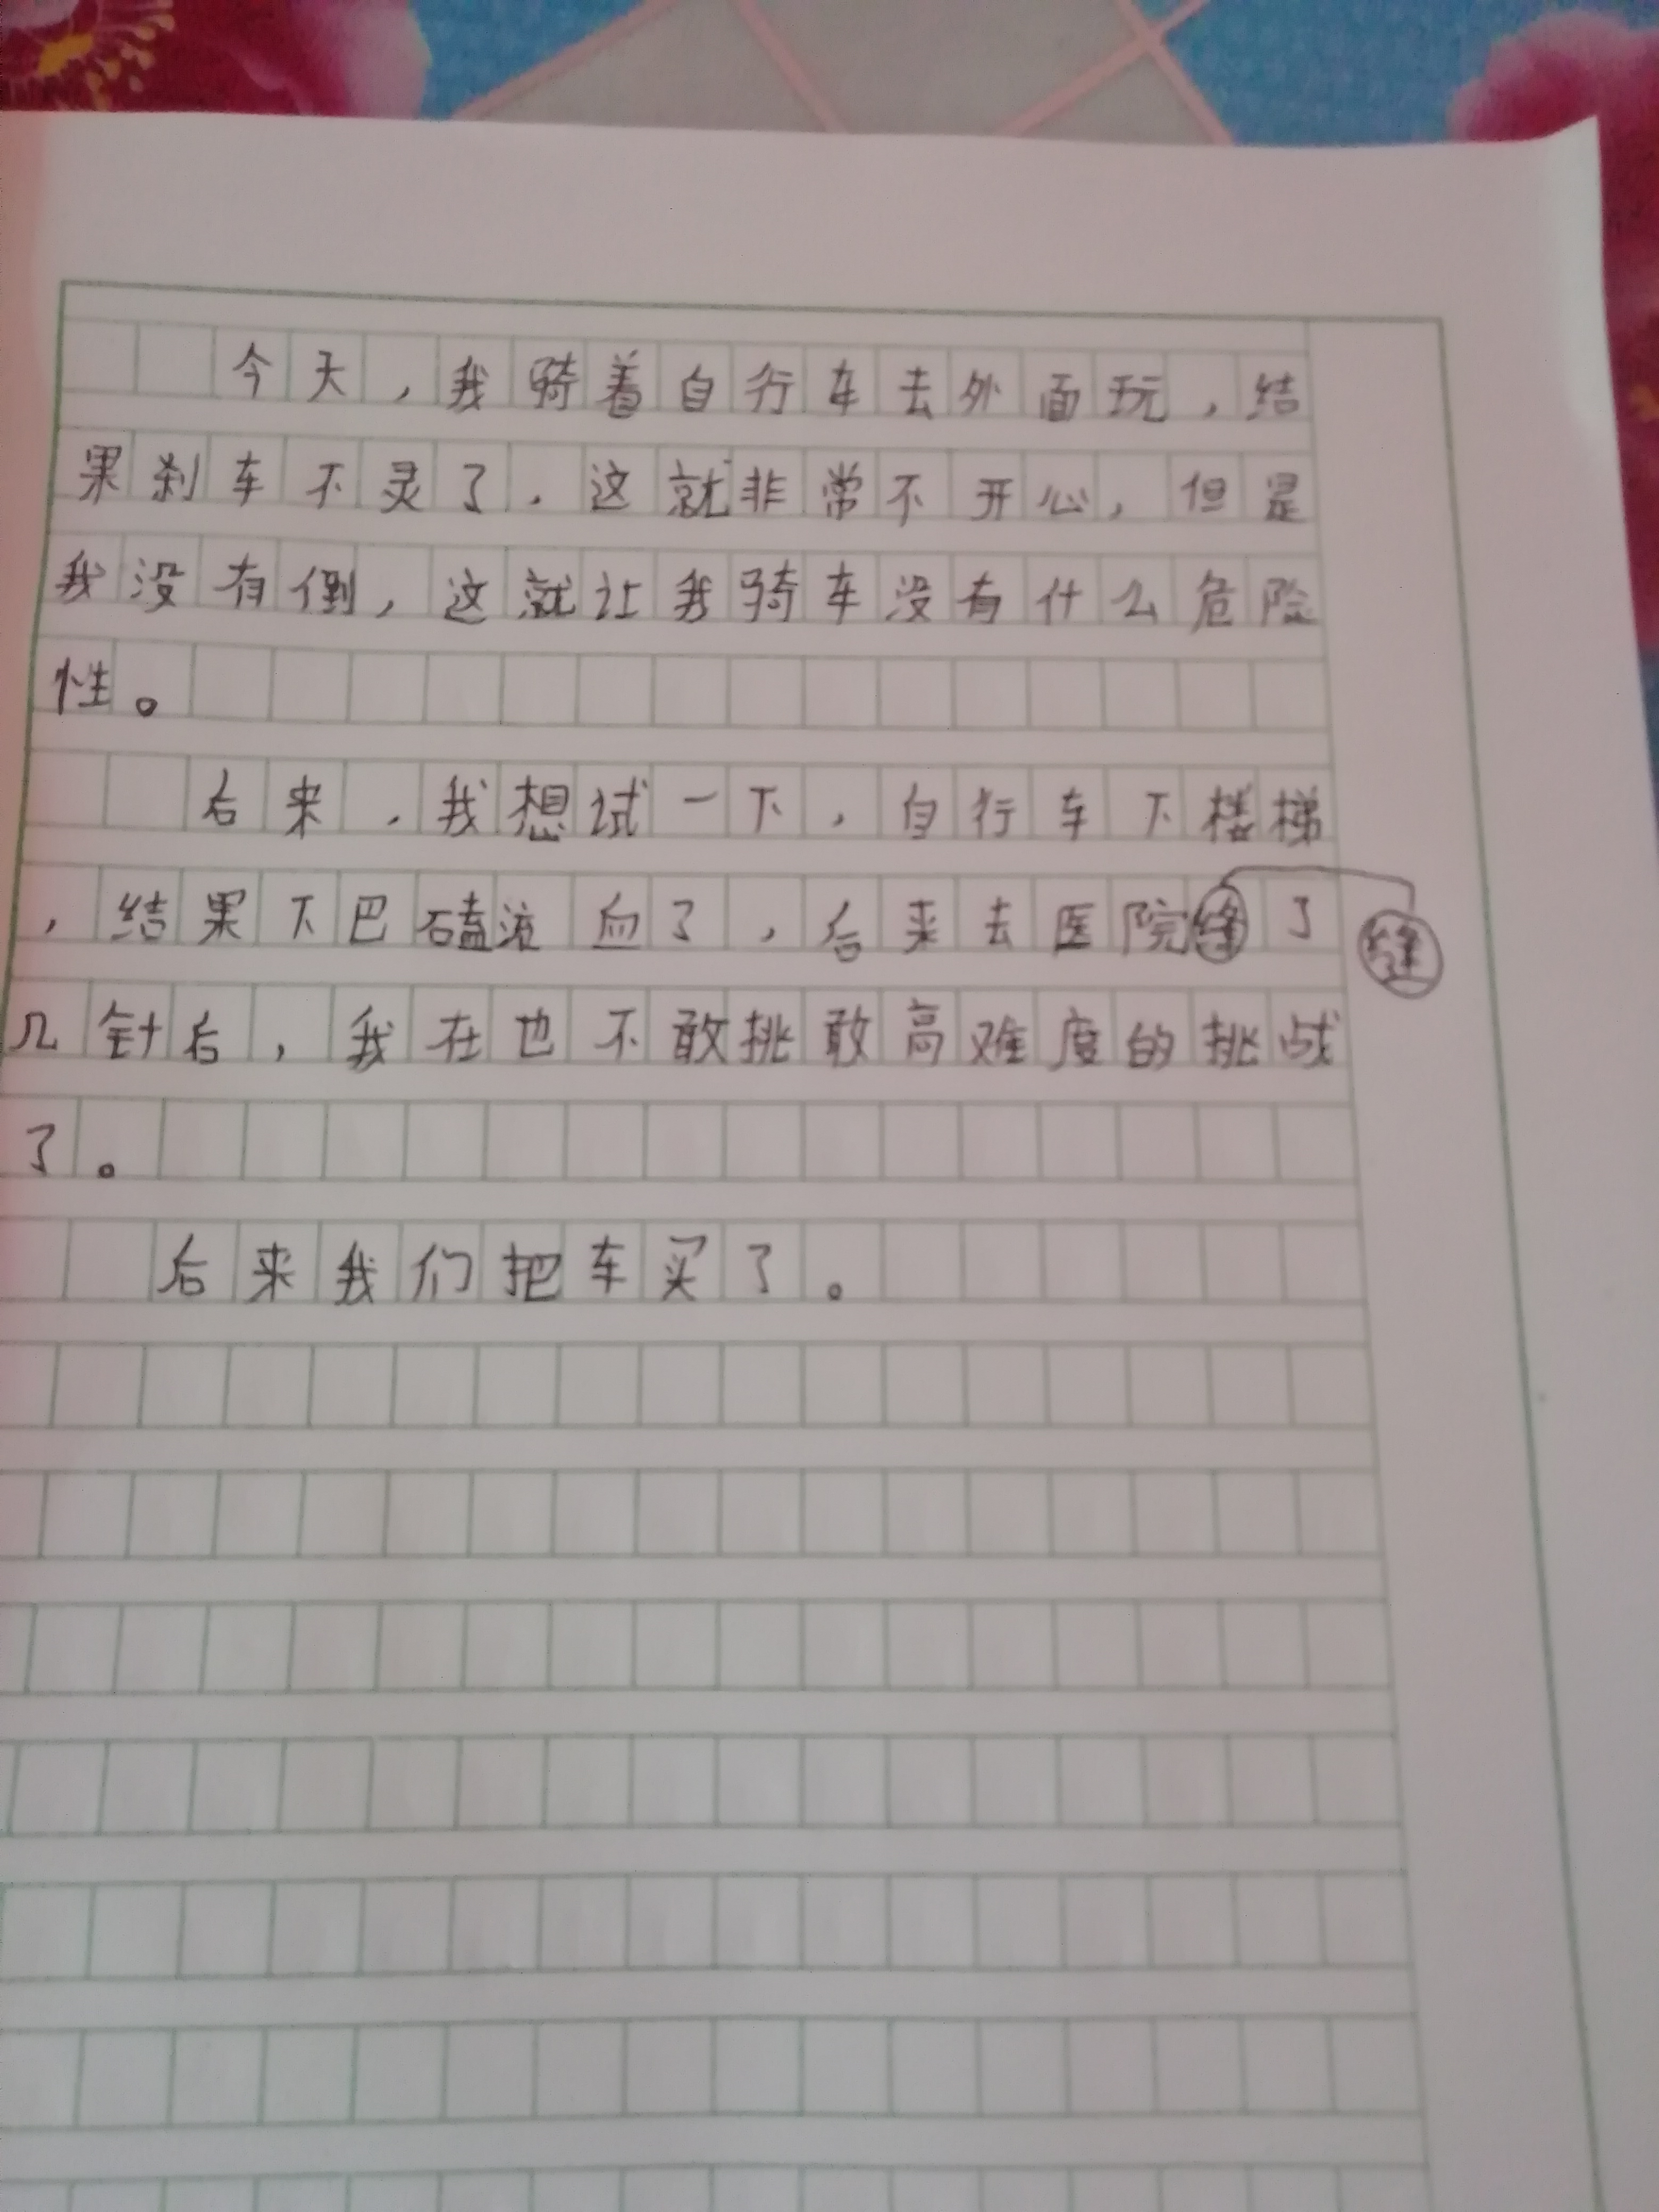 今天，我骑着自行车去外面玩，结
果刹车不灵了，这就非常不开心，但是
我没有倒，这就让我骑车没有什么危险
性。
后来，我想试一下，自行车下楼梯
，结果下巴磕流血了，后来去医院缝了
缝
几针后，我在也不敢挑敢高难度的挑战
了。
后来我们把车买了。